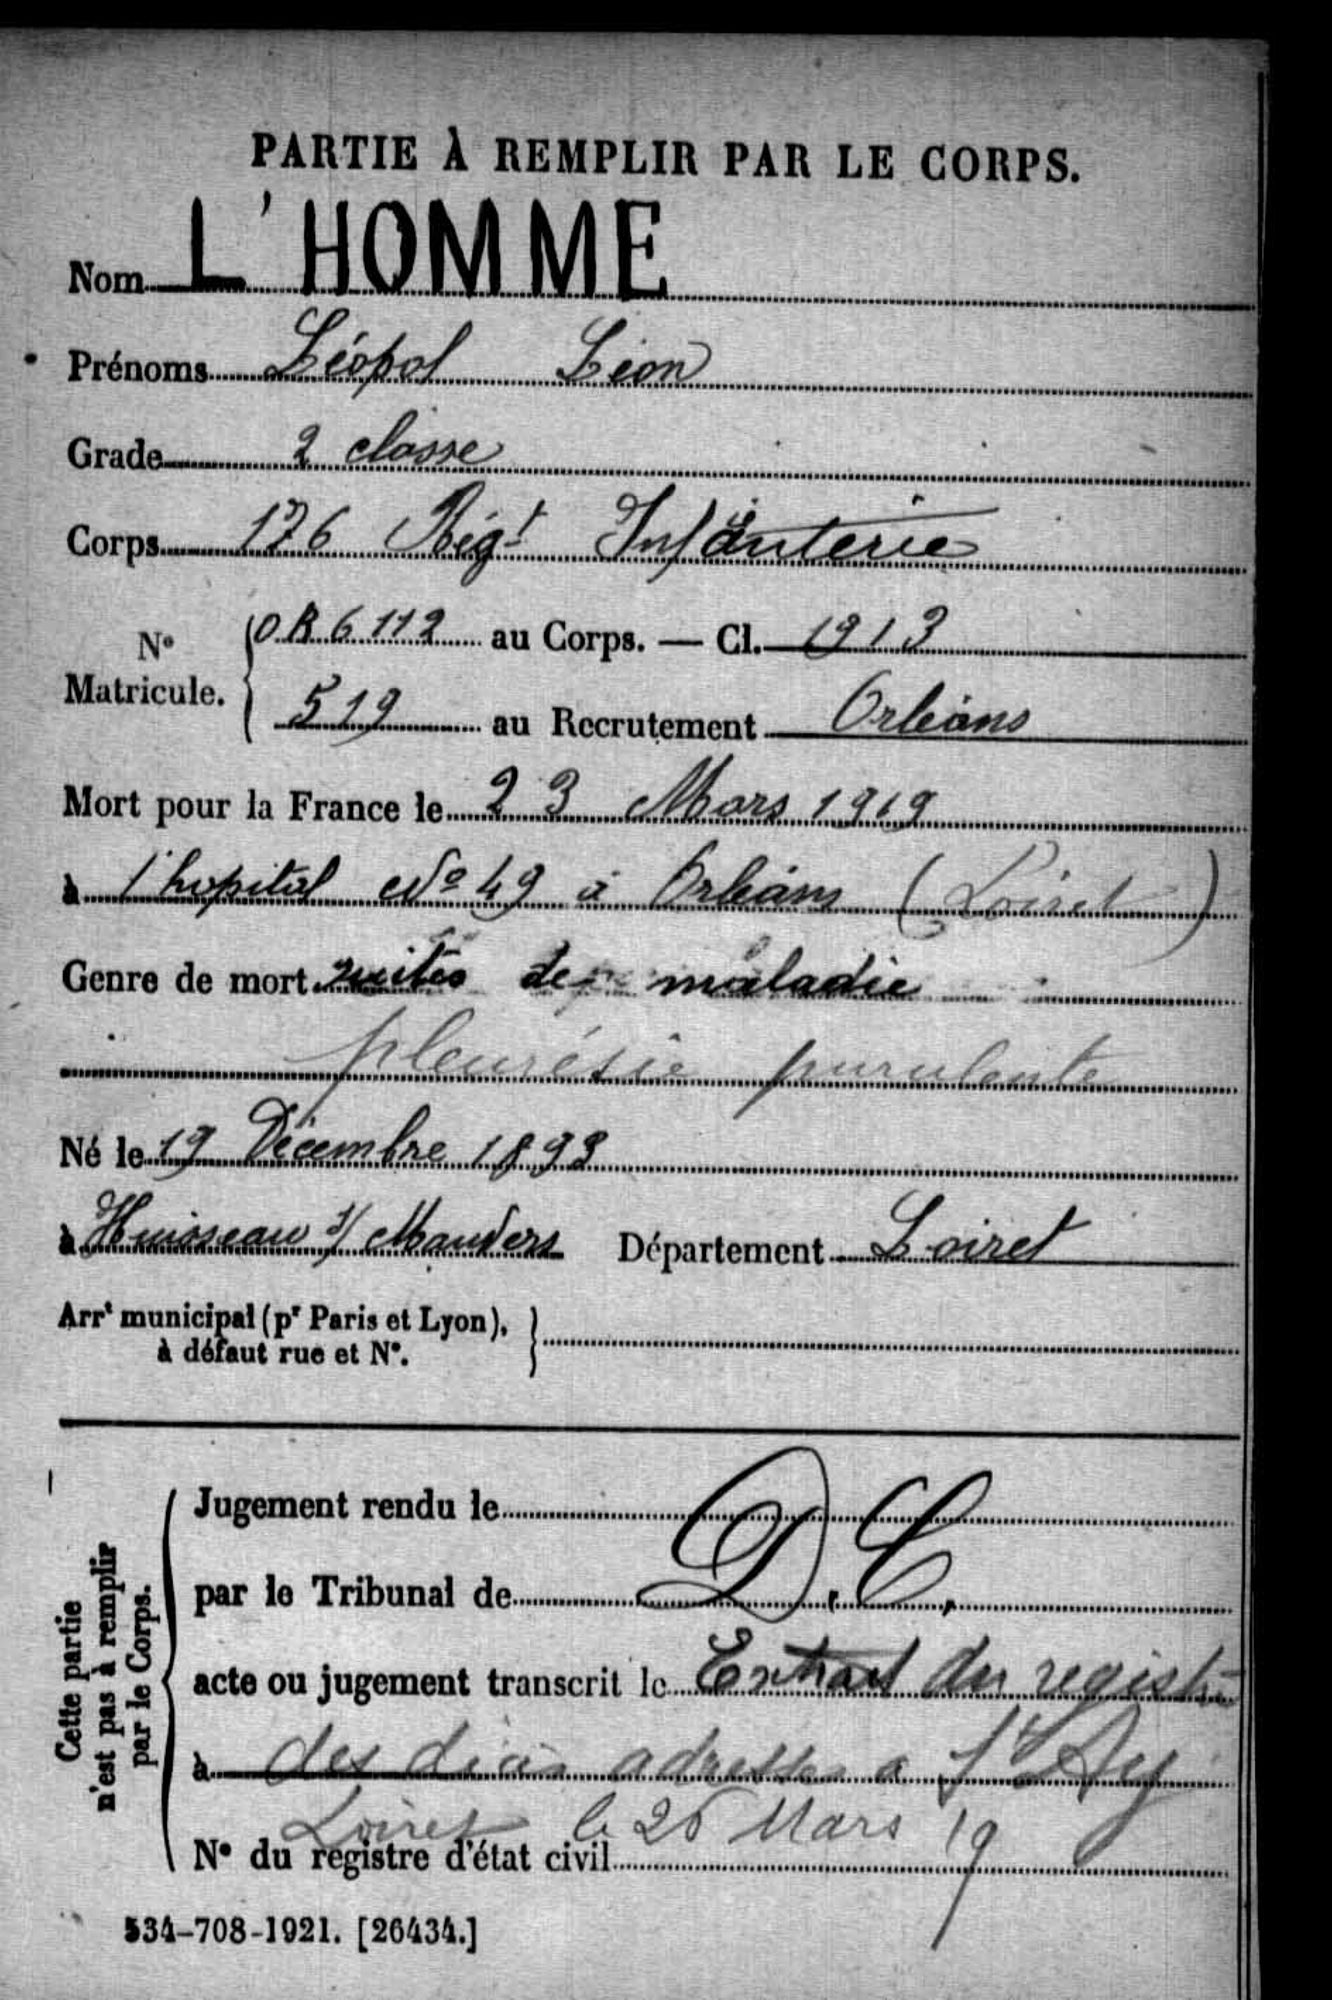 PARTIE À REMPLIR PAR LE CORPS.
Nom L'HOMME
Prénoms Léopol Léon
Grade 2 classe
Corps 176 Régt Infanterie
N° Matricule. { OR 6112 au Corps. — Cl. 1913
519 au Recrutement Orléans
Mort pour la France le 23 Mars 1919
à l'hopital No 49 à Orléans (Loiret)
Genre de mort suites de maladie
pleurésie purulente
Né le 19 Décembre 1893
à Huisseau s/ Mauves Département Loiret
Arrt municipal (pr Paris et Lyon),
à défaut rue et N°.
Cette partie
n'est pas à remplir
par le Corps.
Jugement rendu le
par le Tribunal de D.C.
acte ou jugement transcrit le Extrait du registre
à des décès adressé a St Ay
Loiret le 26 Mars 19
N° du registre d'état civil
534-708-1921. [26434.]